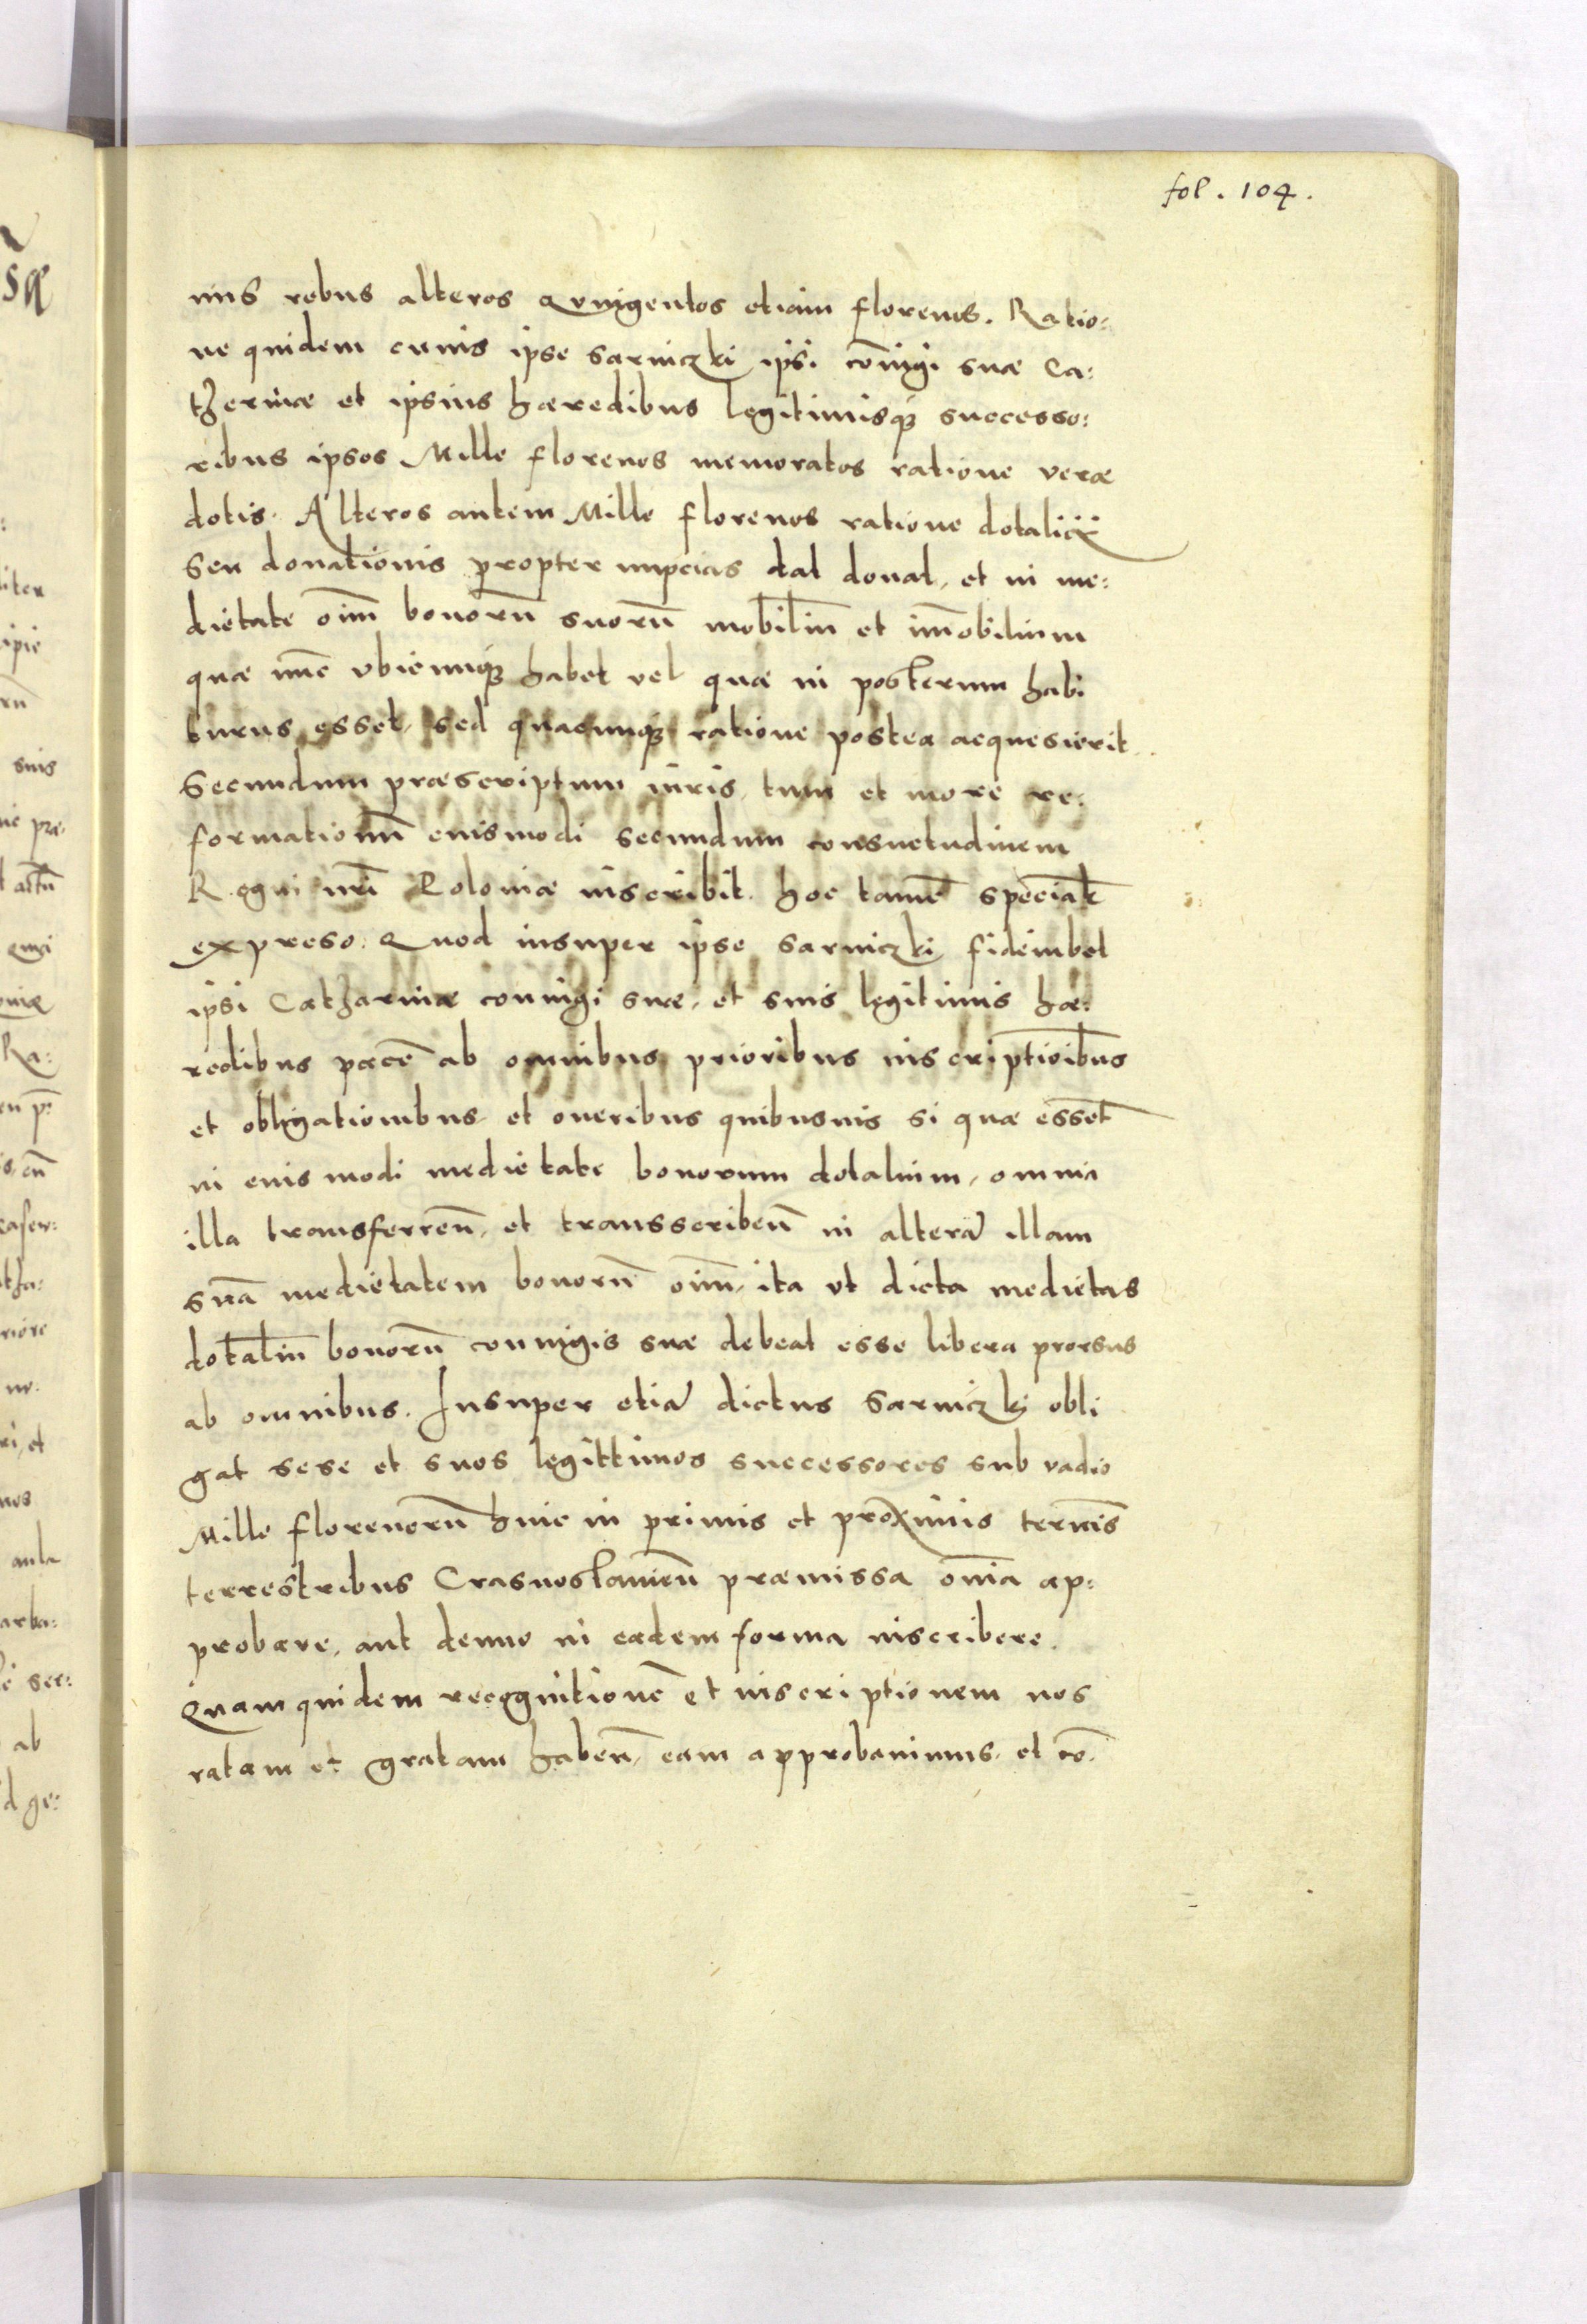 fol. 104.
niis rebus alteros Quingentos etiam florenos. Ratio:
ne quidem cuius ipse Sarniczki ipsi cõiugi suæ Ca:
therinæ et ipsius hæredibus legitimisq̃ successo:
ribus ipsos Mille florenos memoratos ratione veræ
dotis. Alteros autem Mille florenos ratione dotalicij
seu donationis propter nupcias dat donat, et in me:
dietate oĩm bonorũ suorũ mobiliũ et im̃obilium
quæ nũc vbicunq̃ habet vel quæ in posterum habi
turus esset, sed quacunq̃ ratione postea acquesierit
Secundum præscriptum iuris, tum et more re:
formationũ eiusmodi secundum consuetudinem
Regni nr̃i Poloniæ inscribit. hoc tamẽ speciałr
expreso. Quod insuper ipse Sarniczki fideiubet
ipsi Catharinæ coniugi suæ, et suis legitimis hæ:
redibus pacẽ ab omnibus prioribus inscriptioĩbus
et obligationibus, et oneribus quibusuis si quæ essẽt
in eiusmodi medietate bonorum dotalium, omnia
illa transferreñ, et transscribeñ in alterã illam
suã medietatem bonorũ oĩm, ita vt dicta medietas
dotaliũ bonorũ coniugis suæ debeat esse libera prorsus
ab omnibus. Insuper etiã dictus Sarniczki obli
gat sese et suos legittimos successores sub vadio
Mille florenorũ huic in primis et proximis termĩs
terrestribus Crasnostauieñ præmissa om̃ia ap:
probare, aut denuo in eadem forma inscribere.
Quam quidem recognitionẽ et inscriptionem nos
ratam et gratam habeñ, eam approbauimus, et cõ: